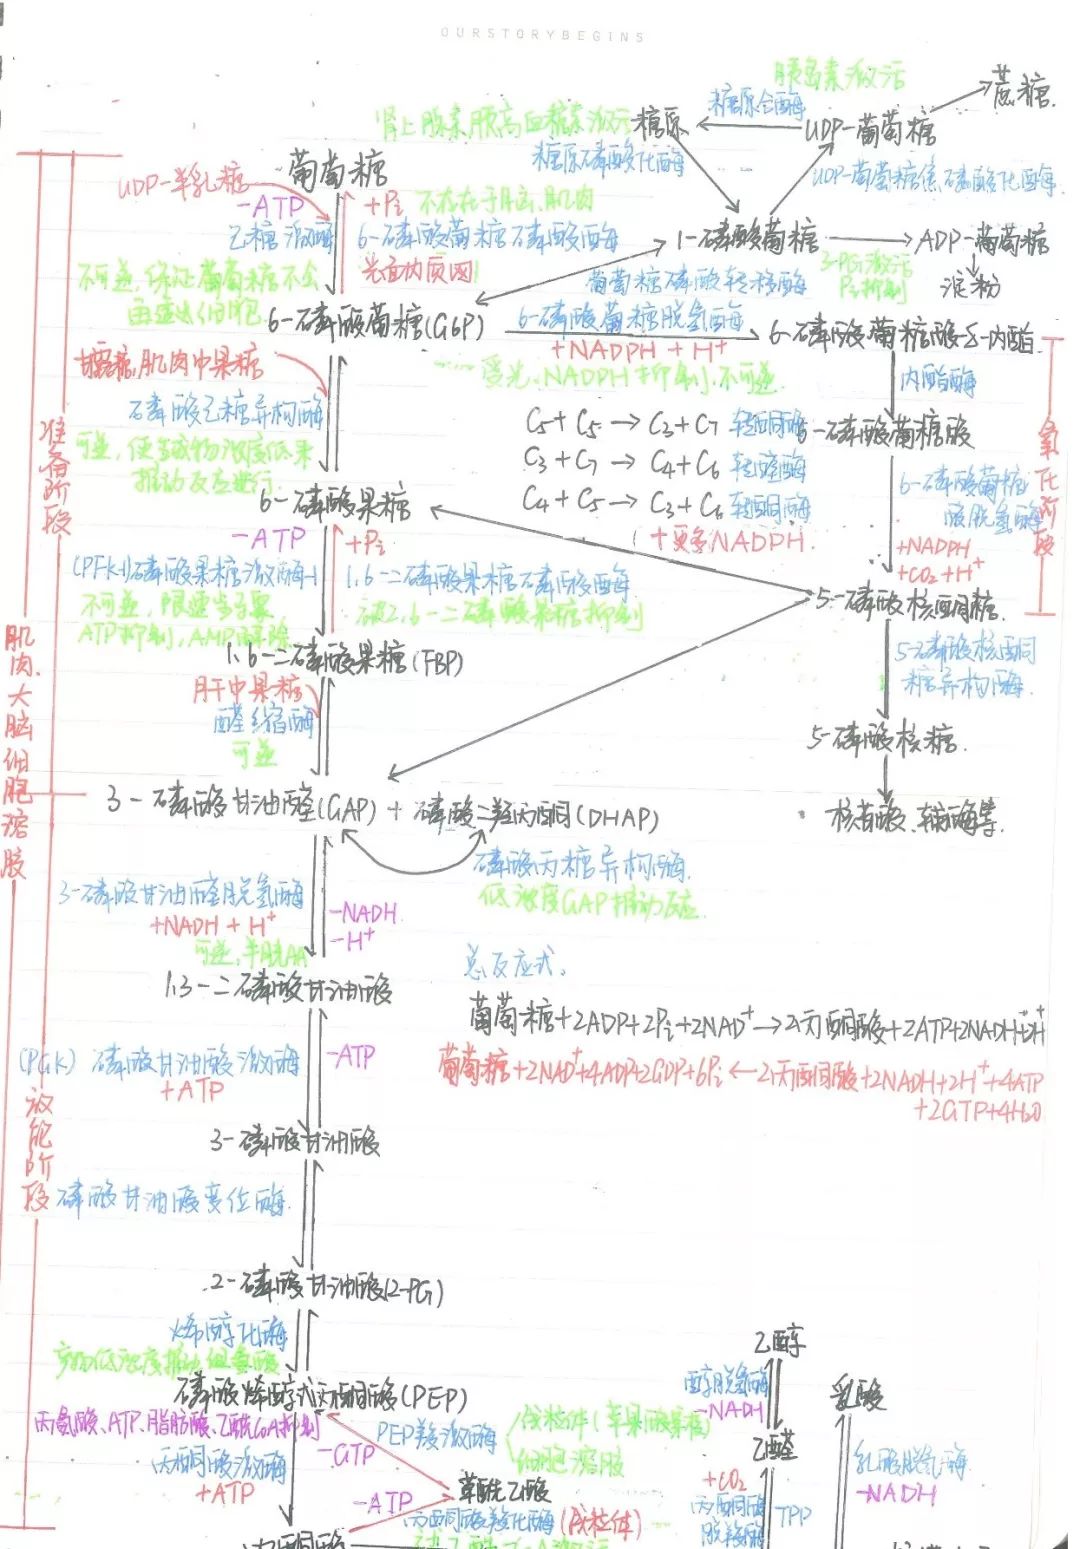 OURSTORYBEGINS
胰岛素激活
蔗糖.
糖原合酶
肾上腺素胰高血糖素激活
糖原
UDP-葡萄糖
糖原磷酸化酶
UDP-葡萄糖焦磷酸化酶
葡萄糖
UDP-半乳糖
-ATP
+Pi
不存在于脑、肌肉
己糖激酶
6-磷酸葡萄糖磷酸酶
光面内质网
1-磷酸葡萄糖
ADP-葡萄糖
3-PG激活
Pi抑制
淀粉
葡萄糖磷酸转移酶
不可逆,保证葡萄糖不会
再逸出细胞
6-磷酸葡萄糖(G6P)
6-磷酸葡萄糖脱氢酶
+NADPH + H+
受光、NADPH抑制,不可逆
6-磷酸葡萄糖酸-δ-内酯
内酯酶
肌肉中果糖
磷酸己糖异构酶
可逆,使生成物浓度低来
推动反应进行
C5+C5→C3+C7 转酮酶
C3+C7→C4+C6 转醛酶
C4+C5→C3+C6 转酮酶
+更多NADPH.
6-磷酸葡萄糖酸
6-磷酸葡萄糖
酸脱氢酶
+NADPH
+CO2+H+
氧化阶段
准备阶段
6-磷酸果糖
-ATP
+Pi
(PFK-1)磷酸果糖激酶-1
1,6-二磷酸果糖磷酸酶
不可逆,限速
ATP抑制,AMP解除
被2,6-二磷酸果糖抑制
1,6-二磷酸果糖(FBP)
5-磷酸核酮糖
5-磷酸核酮
糖异构酶
5-磷酸核糖.
核苷酸、辅酶等
肝中果糖
醛缩酶
可逆
肌肉、大脑细胞溶胶
3-磷酸甘油醛(GAP) + 磷酸二羟丙酮(DHAP)
磷酸丙糖异构酶
低浓度GAP推动反应
3-磷酸甘油醛脱氢酶
+NADH + H+
-NADH
-H+
可逆,半胱AA
1,3-二磷酸甘油酸
总反应式.
葡萄糖+2ADP+2Pi+2NAD+→2丙酮酸+2ATP+2NADH+2H+
葡萄糖+2NAD++4ADP+2GDP+6Pi←2丙酮酸+2NADH+2H++4ATP
+2GTP+4H2O
(PGK) 磷酸甘油酸激酶
+ATP
-ATP
放能阶段
3-磷酸甘油酸
磷酸甘油酸变位酶
2-磷酸甘油酸(2-PG)
烯醇化酶
磷酸烯醇式丙酮酸(PEP)
丙氨酸、ATP、脂肪酸、乙酰CoA抑制
丙酮酸激酶
+ATP
-GTP
PEP羧激酶
线粒体
细胞溶胶
-ATP
草酰乙酸
丙酮酸羧化酶(线粒体)
丙酮酸
乙醇
醇脱氢酶
-NADH
乙醛
+CO2
丙酮酸
脱羧酶
TPP
乳酸
乳酸脱氢酶
-NADH